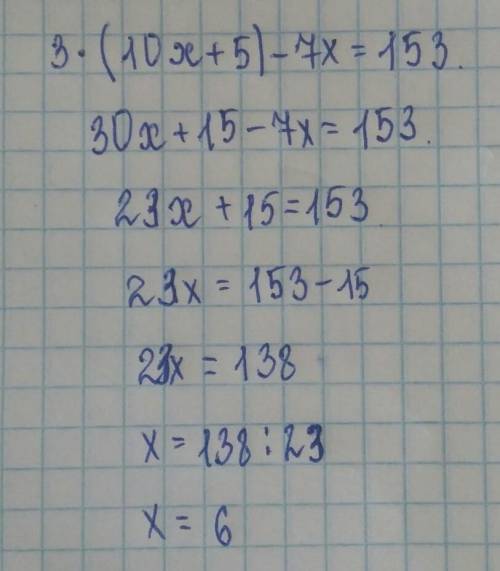 3·(10x+5)-7x=153.
30x+15-7x=153.
23x+15=153
23x=153-15
23x=138
x=138:23
x=6